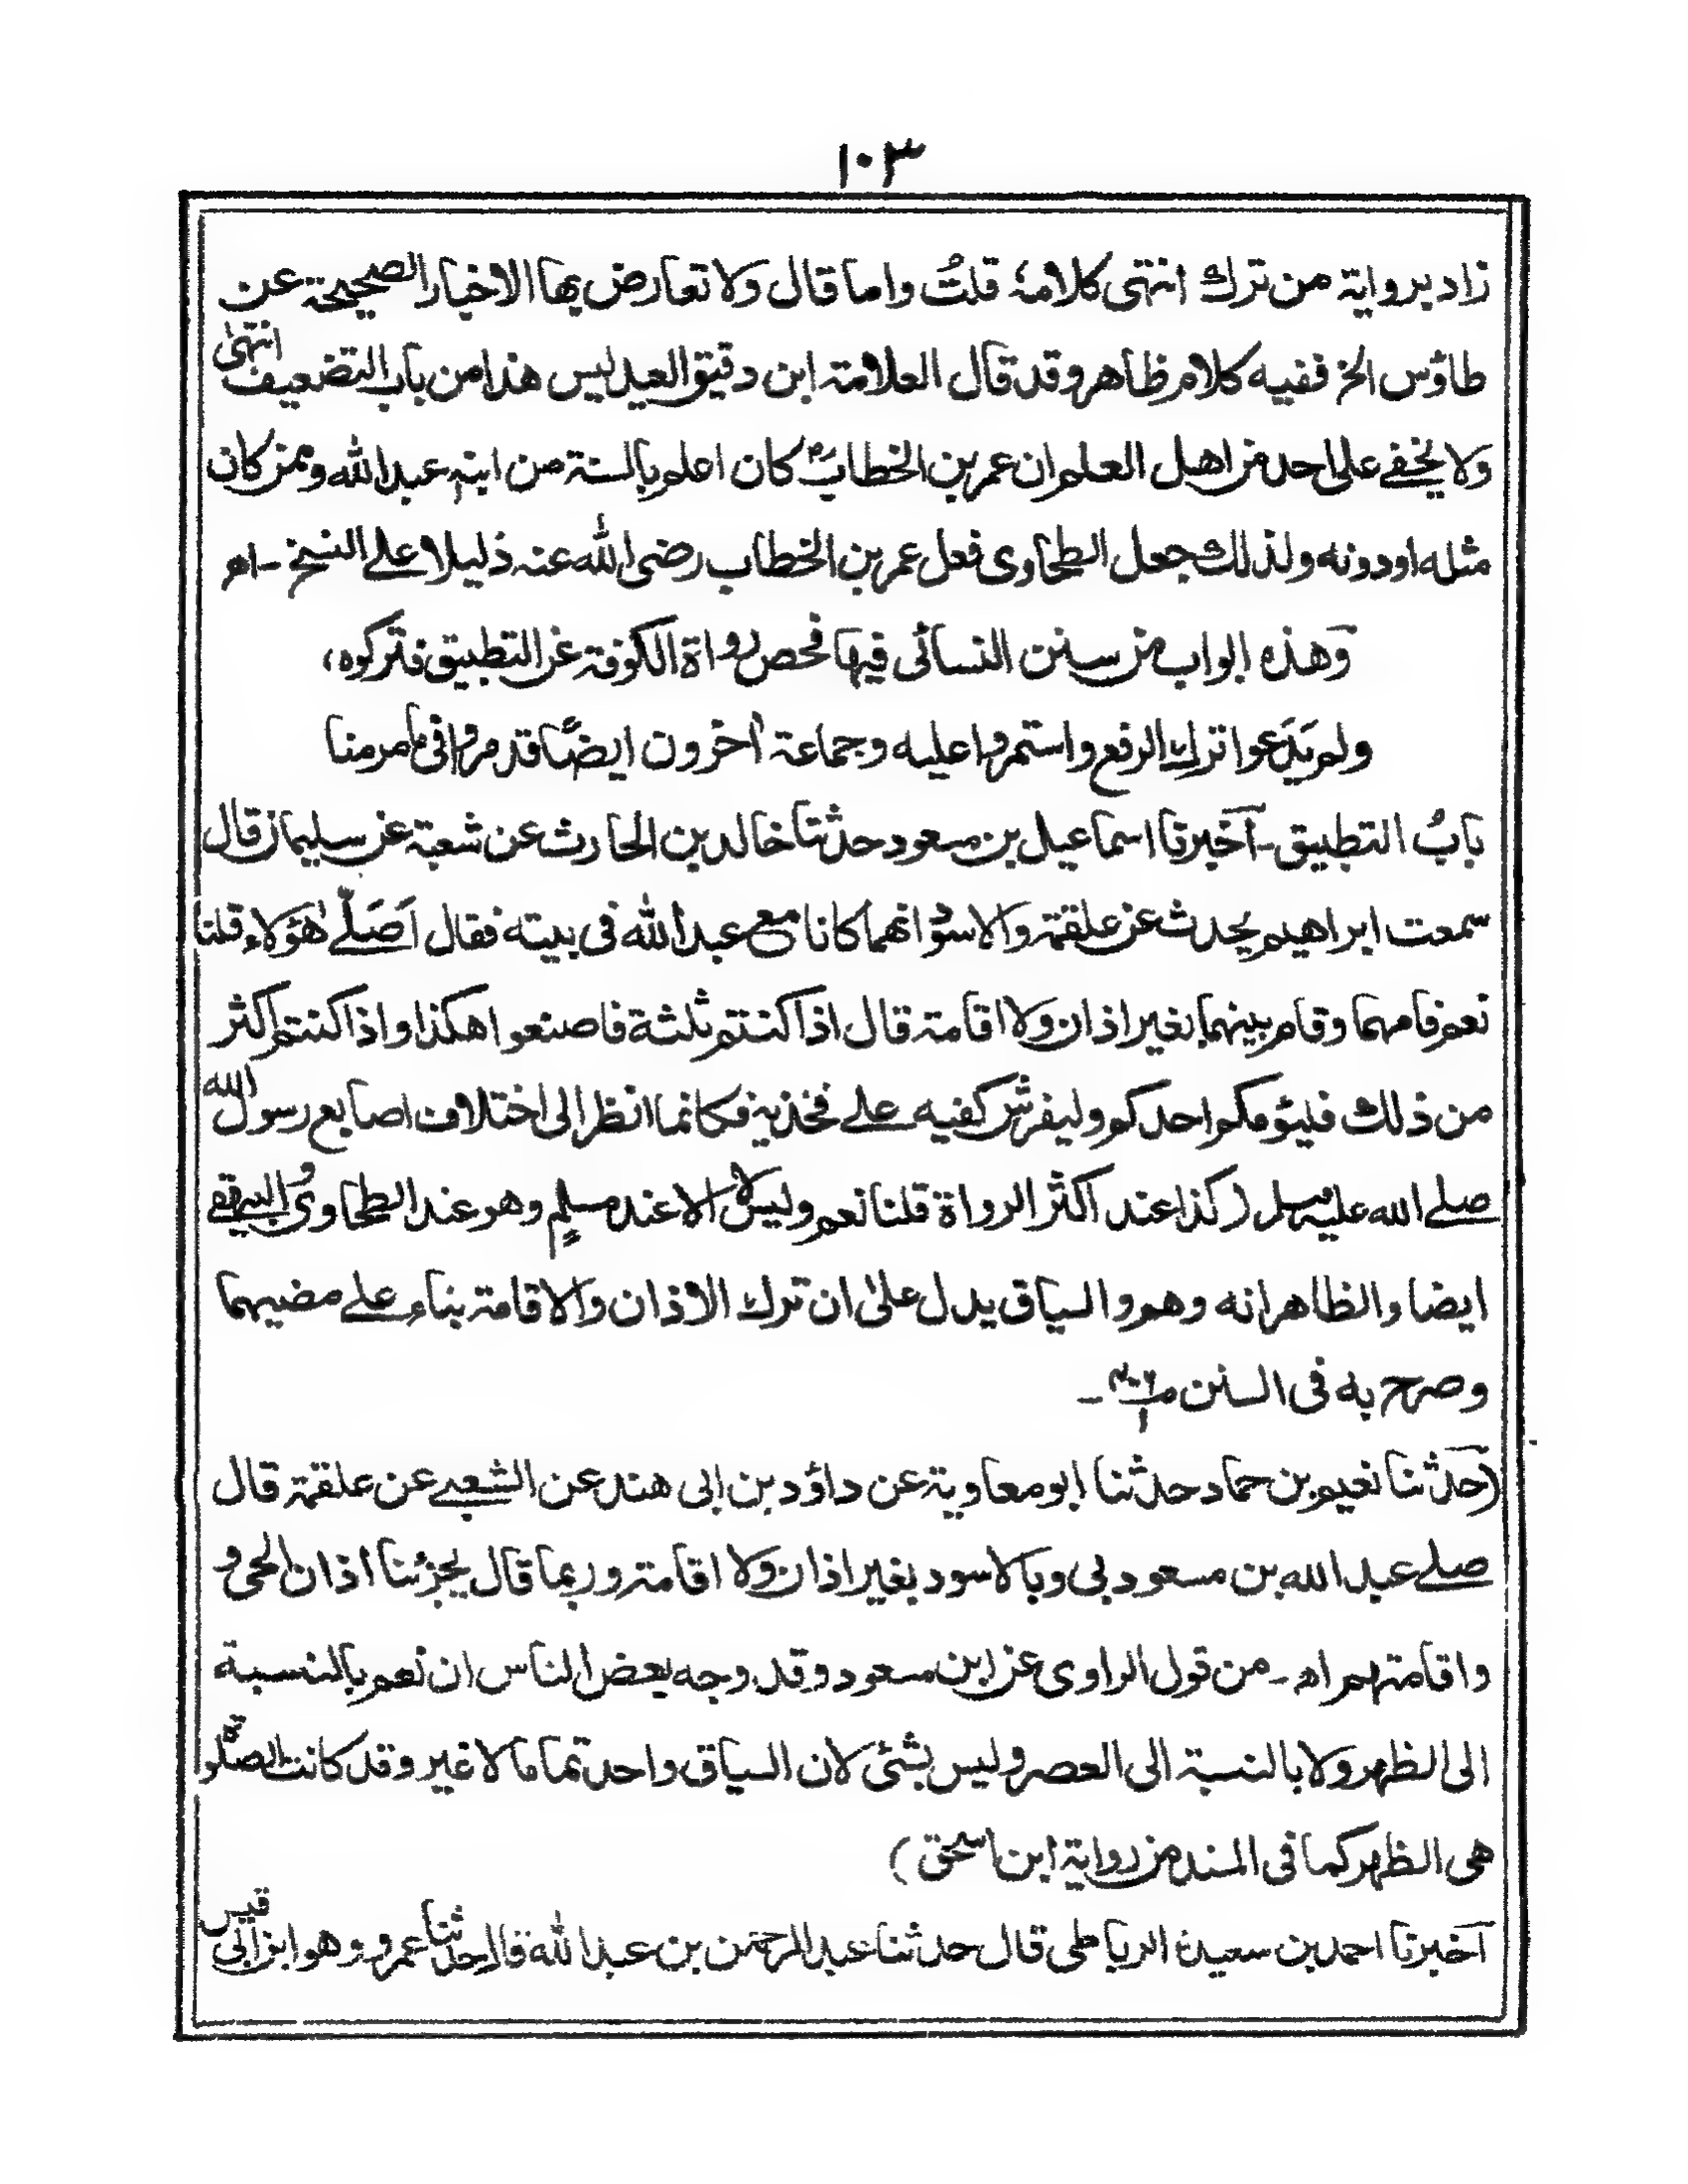 ١٠٣
زاد برواية من ترك انتهى كلامه؛ قلتُ واما قال ولا تعارض بها الاخبار الصحيحة عن
طاؤس الخ ففيه كلام ظاهر وقد قال العلامة ابن دقيق العيد ليس هذا من باب التضعيف انتهىٰ
ولا يخفے علی احد من اهل العلم ان عمر بن الخطابؓ كان اعلم بالسنة من ابنه عبد الله وممن كان
مثله او دونه ولذلك جعل الطحاوى فعل عمر بن الخطاب رضى الله عنه دليلا علے النسخ - اھ
وهذه ابواب من سنن النسائى فيها فحص رواة الكوفة عن التطبيق فتركوه،
ولم يَدَعوا ترك الرفع واستمروا عليه وجماعة اٰخرون ايضًا قد مروا فى ما مر منا
بابُ التطبيق - آخبرنا اسماعيل بن مسعود حدثنا خالد بن الحارث عن شعبة عن سليمان قال
سمعت ابراهيم يحدث عن علقمة والاسود انهما كانا مع عبد الله فى بيته فقال اَصَلّٰے هٰؤلاء قلنا
نعم فامهما وقام بينهما بغير اذان ولا اقامة قال اذا كنتم ثلثة فاصنعوا هكذا واذا كنتم اكثر
من ذلك فليؤمكم احدكم وليفرش كفيه علے فخذيه فكانما انظر الى اختلاف اصابع رسول الله
صلے الله عليه وسلم (كذا عند اكثر الرواة قلنا نعم وليس لا الا عند مسلم وهو عند الطحاوى والبيهقے
ايضا والظاهر انه وهم والسياق يدل علىٰ ان ترك الاذان والاقامة بناء علے مضيهما
وصرح به فى السنن م‍ ٤٠٦/١ -
(حدثنا نعيم بن حماد حدثنا ابو معاوية عن داؤد بن ابى هند عن الشعبے عن علقمة قال
صلے عبد الله بن مسعود بى وبالاسود بغير اذان ولا اقامة وربما قال يجزئنا اذان الحى و
واقامتهم اھ - من قول الراوى عن ابن مسعود وقد وجه بعض الناس ان نعم بالنسبة
الى الظهر ولا بالنسبة الى العصر وليس بشئى لان السياق واحد تماما لا غير وقد كانت الصلٰوة
هى الظهر كما فى المسند من رواية ابن اسحٰق)
آخبرنا احمد بن سعيد الرباطى قال حدثنا عبد الرحمٰن بن عبد الله قال حدثنا عمرو وهو ابن ابى قيس